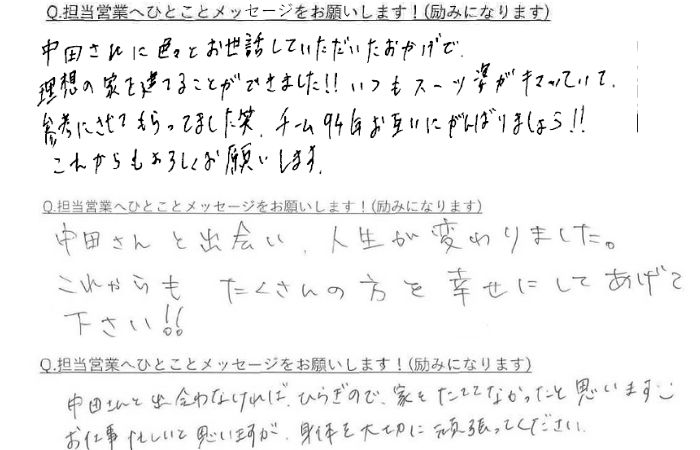 Q.担当営業へひとことメッセージをお願いします！(励みになります)
中田さんに色々とお世話していただいたおかげで、
理想の家を建てることができました!! いつもスーツ姿がキマッていて、
参考にさせてもらってました笑、チーム94年お互いにがんばりましょう!!
これからもよろしくお願いします。
Q.担当営業へひとことメッセージをお願いします！(励みになります)
中田さんと出会い、人生が変わりました。
これからも たくさんの方を幸せにしてあげて
下さい!!
Q.担当営業へひとことメッセージをお願いします！(励みになります)
中田さんと出会わなければ、ひらぎので、家をたててなかったと思います
お仕事忙しいと思いますが、身体を大切に頑張ってください。